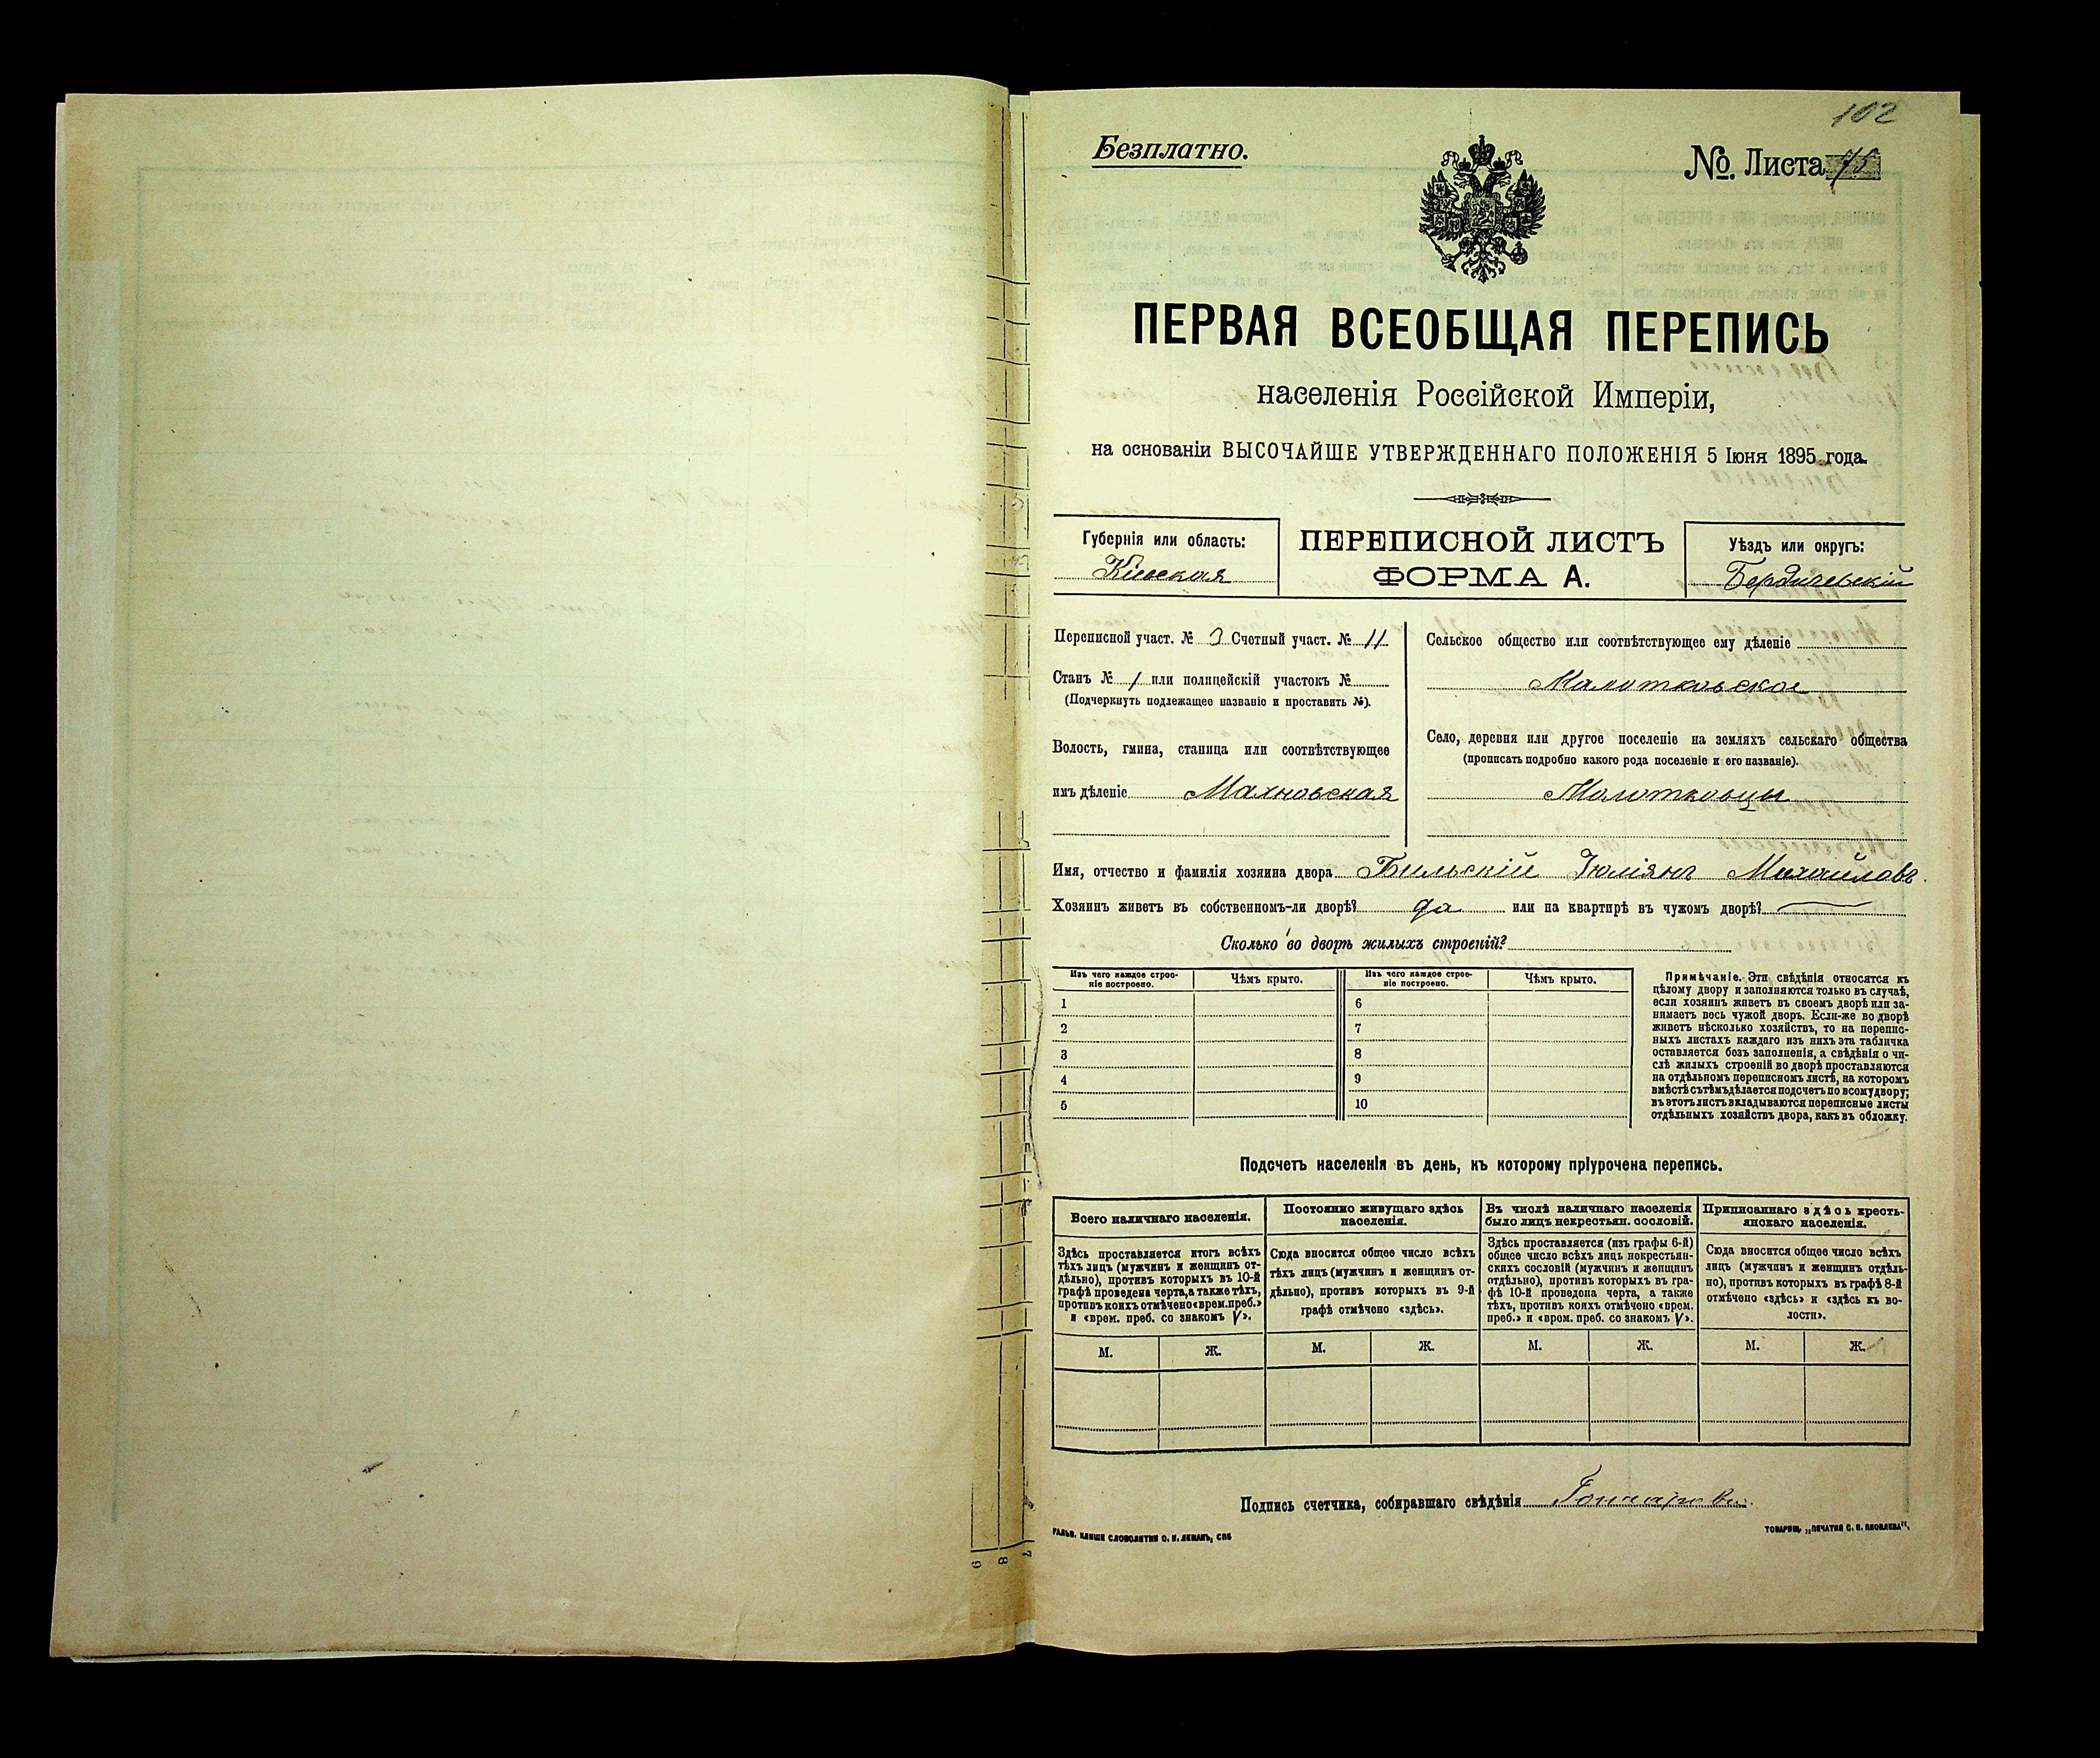 102
Безплатно.
№. Листа 75
ПЕРВАЯ ВСЕОБЩАЯ ПЕРЕПИСЬ
населенія Россійской Имперіи,
на основаніи ВЫСОЧАЙШЕ УТВЕРЖДЕННАГО ПОЛОЖЕНІЯ 5 Іюня 1895 года.
Губернія или область:
Кіевская
ПЕРЕПИСНОЙ ЛИСТЪ
ФОРМА А.
Уѣздъ или округъ:
Бердичевскій
Переписной участ. № 3 Счетный участ. № 11
Станъ № 1 или полицейскій участокъ №
(Подчеркнуть подлежащее названіе и проставить №).
Волость, гмина, станица или соотвѣтствующее
имъ дѣленіе Махновская
Сельское общество или соотвѣтствующее ему дѣленіе
Молотковское
Село, деревня или другое поселеніе на земляхъ сельскаго общества
(прописать подробно какого рода поселеніе и его названіе).
Молотковцы
Имя, отчество и фамилія хозяина двора Бильскій Іюліянъ Михайловъ
Хозяинъ живетъ въ собственномъ-ли дворѣ? да или на квартирѣ въ чужомъ дворѣ?
Сколько во дворѣ жилыхъ строеній?
Изъ чего каждое строе-
ніе построено.
Чѣмъ крыто.
1
2
3
4
5
Изъ чего каждое строе-
ніе построено.
Чѣмъ крыто.
6
7
8
9
10
Примѣчаніе. Эти свѣдѣнія относятся къ
цѣлому двору и заполняются только въ случаѣ,
если хозяинъ живетъ въ своемъ дворѣ или за-
нимаетъ весь чужой дворъ. Если-же во дворѣ
живетъ нѣсколько хозяйствъ, то на перепис-
ныхъ листахъ каждаго изъ нихъ эта табличка
оставляется безъ заполненія, а свѣдѣнія о чи-
слѣ жилыхъ строеній во дворѣ проставляются
на отдѣльномъ переписномъ листѣ, на которомъ
вмѣстѣ съ тѣмъ дѣлается подсчетъ по всему двору;
въ этотъ листъ вкладываются переписные листы
отдѣльныхъ хозяйствъ двора, какъ въ обложку.
Подсчетъ населенія въ день, къ которому пріурочена перепись.
Всего наличнаго населенія.
Здѣсь проставляется итогъ всѣхъ
тѣхъ лицъ (мужчинъ и женщинъ от-
дѣльно), противъ которыхъ въ 10-й
графѣ проведена черта, а также тѣхъ,
противъ коихъ отмѣчено «врем. преб.»
и «врем. преб. со знакомъ V».
М. Ж.
Постоянно живущаго здѣсь
населенія.
Сюда вносится общее число всѣхъ
тѣхъ лицъ (мужчинъ и женщинъ от-
дѣльно), противъ которыхъ въ 9-й
графѣ отмѣчено «здѣсь».
М. Ж.
Въ числѣ наличнаго населенія
было лицъ некрестьян. сословій.
Здѣсь проставляется (изъ графы 6-й)
общее число всѣхъ лицъ некрестьян-
скихъ сословій (мужчинъ и женщинъ
отдѣльно), противъ которыхъ въ гра-
фѣ 10-й проведена черта, а также
тѣхъ, противъ коихъ отмѣчено «врем.
преб.» и «врем. преб. со знакомъ V».
М. Ж.
Приписаннаго здѣсь кресть-
янскаго населенія.
Сюда вносится общее число всѣхъ
лицъ (мужчинъ и женщинъ отдѣль-
но), противъ которыхъ въ графѣ 8-й
отмѣчено «здѣсь» и «здѣсь къ во-
лости».
М. Ж.
Подпись счетчика, собиравшаго свѣдѣнія
ГАЛЬВ. КЛИШЕ СЛОВОЛИТНИ О. И. ЛЕМАНЪ, СПБ
ТОВАРИЩ. „ПЕЧАТНЯ С. П. ЯКОВЛЕВА".
9 8 7